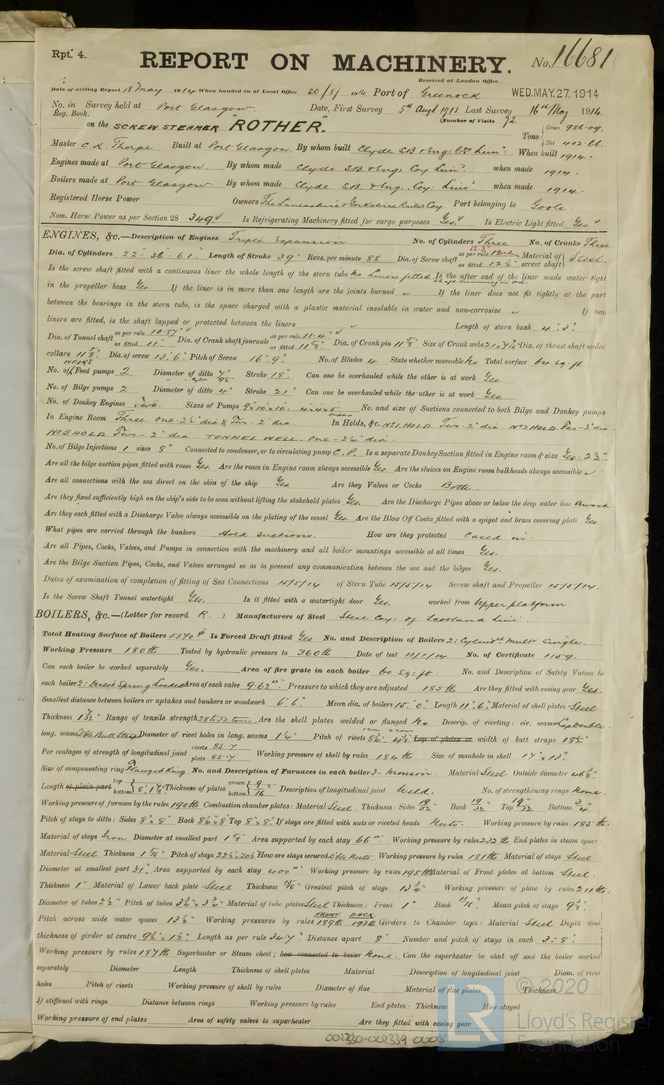 Rpt. 4.
REPORT ON MACHINERY.
No. 16681
Received at London Office
WED.MAY.27.1914
Date of writing Report 18 May 1914 When handed in at Local Office 20/5/1914 Port of Greenock
No. in Survey held at Port Glasgow Date, First Survey 5th Augt 1913 Last Survey 16th May 1914
Reg. Book. (Number of Visits 72
on the SCREW STEAMER "ROTHER". Tons Gross 986.09 Net 402.66
Master C. R. Thorpe Built at Port Glasgow By whom built Clyde S.B. & Eng. Co. Lim. When built 1914.
Engines made at Port Glasgow. By whom made Clyde S.B. & Eng. Coy. Lim. when made 1914.
Boilers made at Port Glasgow By whom made Clyde S.B. & Eng. Coy. Lim. when made 1914.
Registered Horse Power Owners The Lancashire & Yorkshire Rails Coy. Port belonging to Goole
Nom. Horse Power as per Section 28 349 Is Refrigerating Machinery fitted for cargo purposes Yes. Is Electric Light fitted Yes.
ENGINES, &c.—Description of Engines Triple Expansion No. of Cylinders Three No. of Cranks Three
Dia. of Cylinders 22". 36". 61" Length of Stroke 39" Revs. per minute 88 Dia. of Screw shaft as per rule as fitted 12 Material of screw shaft Steel.
Is the screw shaft fitted with a continuous liner the whole length of the stern tube No Liners fitted Is the after end of the liner made water tight
in the propeller boss Yes. If the liner is in more than one length are the joints burned If the liner does not fit tightly at the part
between the bearings in the stern tube, is the space charged with a plastic material insoluble in water and non-corrosive If two
liners are fitted, is the shaft lapped or protected between the liners Length of stern bush 4'. 3"
Dia. of Tunnel shaft as per rule 10.87" as fitted 11" Dia. of Crank shaft journals as per rule 11.4" as fitted 11 Dia. of Crank pin 11 Size of Crank webs Dia. of thrust shaft under
collars 11 Dia. of screw 13'. 6" Pitch of Screw 16'. 9" No. of Blades 4 State whether moveable No Total surface 64 sq. ft
No. of Feed pumps 2 WEIRS Diameter of ditto Stroke 18" Can one be overhauled while the other is at work Yes.
No. of Bilge pumps 2 Diameter of ditto 4" Stroke 21" Can one be overhauled while the other is at work Yes.
No. of Donkey Engines Two. Sizes of Pumps No. and size of Suctions connected to both Bilge and Donkey pumps
In Engine Room Three one 2½" dia & Two 2" dia In Holds, &c. No 1 HOLD Two 2" dia No 2 HOLD Two 2" dia
No 3 HOLD Two 2" dia TUNNEL WELL one 2½" dia.
No. of Bilge Injections 1 sizes 8" Connected to condenser, or to circulating pump C.P. Is a separate Donkey Suction fitted in Engine room & size Yes: 2½"
Are all the bilge suction pipes fitted with roses Yes. Are the roses in Engine room always accessible Yes. Are the sluices on Engine room bulkheads always accessible
Are all connections with the sea direct on the skin of the ship Yes Are they Valves or Cocks Both.
Are they fixed sufficiently high on the ship's side to be seen without lifting the stokehold plates Yes. Are the Discharge Pipes above or below the deep water line
Are they each fitted with a Discharge Valve always accessible on the plating of the vessel Yes. Are the Blow Off Cocks fitted with a spigot and brass covering plate Yes.
What pipes are carried through the bunkers Hold suctions. How are they protected Cased in.
Are all Pipes, Cocks, Valves, and Pumps in connection with the machinery and all boiler mountings accessible at all times Yes.
Are the Bilge Suction Pipes, Cocks, and Valves arranged so as to prevent any communication between the sea and the bilges Yes.
Dates of examination of completion of fitting of Sea Connections 15/5/14 of Stern Tube 15/5/14 Screw shaft and Propeller 15/5/14.
Is the Screw Shaft Tunnel watertight Yes. Is it fitted with a watertight door Yes. worked from Upper platform.
BOILERS, &c.—(Letter for record R.) Manufacturers of Steel Steel Coy. of Scotland Lim.
Total Heating Surface of Boilers 5370 Is Forced Draft fitted Yes No. and Description of Boilers 2: Cylind. Mult. Single.
Working Pressure 180 lb Tested by hydraulic pressure to 360 lb Date of test No. of Certificate 1159.
Can each boiler be worked separately Yes. Area of fire grate in each boiler 60 sq. ft. No. and Description of Safety Valves to
each boiler 2: Direct Spring Loaded Area of each valve 9.62 Pressure to which they are adjusted 185 lb Are they fitted with easing gear Yes.
Smallest distance between boilers or uptakes and bunkers or woodwork 6'. 6" Mean dia. of boilers 15'. 0" Length 11'. 6" Material of shell plates Steel
Thickness Range of tensile strength Are the shell plates welded or flanged No Descrip. of riveting: cir. seams Lap Double.
long. seams Pitch of rivets lap of plates or width of butt straps
Diameter of rivet holes in long. seams 1¼"
Per centages of strength of longitudinal joint rivets 85.7 plate 85.7 Working pressure of shell by rules 184 lb Size of manhole in shell 17" x 13"
Size of compensating ring Flanged Ring No. and Description of Furnaces in each boiler 3 Morison. Material Steel Outside diameter
Length of plain part top bottom Thickness of plates crown bottom Description of longitudinal joint Weld. No. of strengthening rings None.
Working pressure of furnace by the rules 190 lb Combustion chamber plates: Material Steel. Thickness: Sides Back Top Bottom
Pitch of stays to ditto: Sides Back Top If stays are fitted with nuts or riveted heads Nuts. Working pressure by rules 185 lb.
Material of stays Iron Diameter at smallest part Area supported by each stay 66 Working pressure by rules 232 lb End plates in steam space:
Material Steel Thickness Pitch of stays How are stays secured Working pressure by rules 181 lb Material of stays Steel
Diameter at smallest part Area supported by each stay 400 Working pressure by rules 195 lb Material of Front plates at bottom Steel.
Thickness 1" Material of Lower back plate Steel Thickness Greatest pitch of stays 13½" Working pressure of plate by rules
Diameter of tubes 2½" Pitch of tubes Material of tube plates Steel Thickness: Front 1" Back Mean pitch of stays
Pitch across wide water spaces 13½" Working pressures by rules FRONT BACK Girders to Chamber tops: Material Steel Depth and
thickness of girder at centre Length as per rule Distance apart 8" Number and pitch of stays in each 3: 8".
Working pressure by rules 187 lb Superheater or Steam chest; how connected to boiler None. Can the superheater be shut off and the boiler worked
separately Diameter Length Thickness of shell plates Material Description of longitudinal joint Diam. of rivet
holes Pitch of rivets Working pressure of shell by rules Diameter of flue Material of flue plates Thickness
If stiffened with rings Distance between rings Working pressure by rules End plates: Thickness How stayed
Working pressure of end plates Area of safety valves to superheater Are they fitted with easing gear
002330-002339 0008
© 2020
LR
Lloyd's Register
Foundation